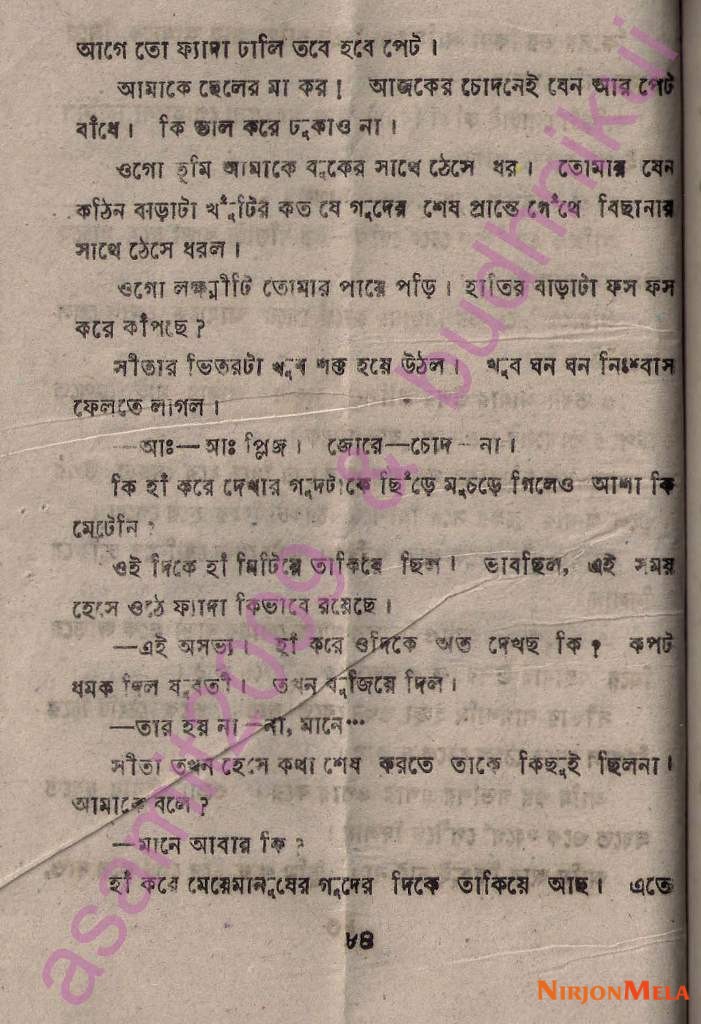 আগে তো ফ্যাদা ঢালি তবে হবে পেট।
আমাকে ছেলের মা কর! আজকের চোদনেই যেন আর পেট
বাঁধে। কি ভাল করে ঢুকাও না।
ওগো তুমি আমাকে বুকের সাথে ঠেসে ধর। তোমার যেন
কঠিন বাড়াটা খুঁটির কত যে গুদের শেষ প্রান্তে গেঁথে বিছানার
সাথে ঠেসে ধরল।
ওগো লক্ষ্মীটি তোমার পায়ে পড়ি। হাতির বাড়াটা ফস ফস
করে কাঁপছে?
সীতার ভিতরটা খুব শক্ত হয়ে উঠল। খুব ঘন ঘন নিঃশ্বাস
ফেলতে লাগল।
—আঃ—আঃ প্লিজ। জোরে—চোদ—না।
কি হাঁ করে দেখার গুদটাকে ছিঁড়ে মুচড়ে গিলেও আশা কি
মেটেনি?
ওই দিকে হাঁ মিটিয়ে তাকিয়ে ছিল। ভাবছিল, এই সময়
হেসে ওঠে ফ্যাদা কিভাবে রয়েছে।
—এই অসভ্য। হাঁ করে ওদিকে অত দেখছ কি? কপট
ধমক দিল যুবতী। তখন বুজিয়ে দিল।
—তার হয় না—না, মানে···
সীতা তখন হেসে কথা শেষ করতে তাকে কিছুই ছিলনা।
আমাকে বলে?
—মানে আবার কি?
হাঁ করে মেয়েমানুষের গুদের দিকে তাকিয়ে আছ। এতে
৮৪
asamit2009 & budhnikuii
NIRJONMELA